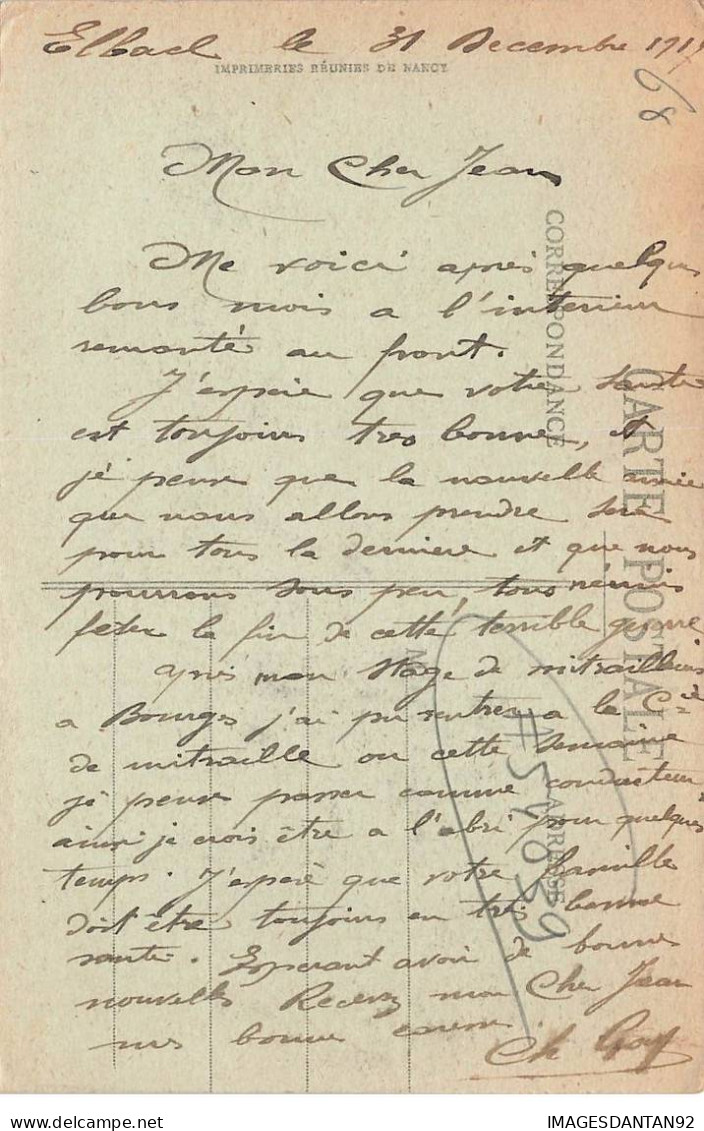 Elbach le 31 Decembre 191
IMPRIMERIES RÉUNIES DE NANCY
68
Mon Cher Jean
Me voici aprés quelques
bons mois a l'interieur
remonté au front.
J'espère que votre santé
est toujours tres bonne, et
je pense que la nouvelle année
que nous allons prendre sera
pour tous la derniere et que nous
pourrons sous peu, tous réunis
feter la fin de cette terrible guerre
apres mon stage de mitrailleurs
a Bourges j'ai pu rentrer a la Cie
de mitraille ou cette semaine
je pense passer comme conducteur
ainsi je crois être a l'abri pour quelques
temps. J'espere que votre famille
doit être toujours en très bonne
santé. Esperant avoir de bonnes
nouvelles Recevez mon Cher Jean
mes bonnes
Ch
CORRESPONDANCE
CARTE POSTALE
ADRESSE
#54039
IMAGESDANTAN92